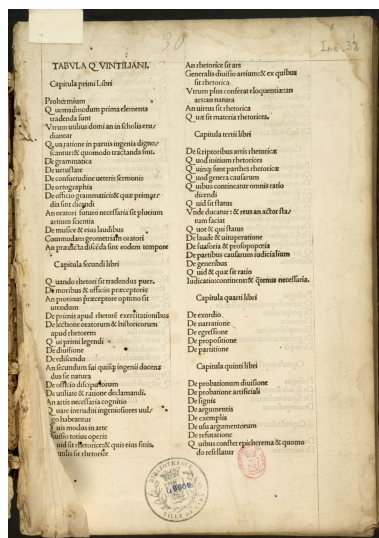 30
Inc. 38
TABVLA Q VINTILIANI.
Capitula primi Libri
Prohœmium
Q uemadmodum prima elementa
tradenda sunt
Vtrum utilius domi an in scholis eru/
diantur
Q ua ratione in paruis ingenia dignos
scantur: & quomodo tractanda sint.
De grammatica
De uetustate
De consuetudine ueteris sermonis
De ortographia
De officio grammatici: & quæ primor/
dia sint dicendi
An oratori futuro necessaria sit plurium
artium scientia
De musice & eius laudibus
Commodam geometriam oratori
An prædicta discenda sint eodem tempore
Capitula secundi libri
Q uando rhetori sit tradendus puer.
De moribus & officiis præceptoris
An protinus præceptore optimo sit
utendum
De primis apud rhetorē exercitationibus
De lectione oratorum & historicorum
apud rhetorem
Q ui primi legendi
De diuisione
De ediscendo
An secundum sui quisq; ingenii docens
dus sit natura
De officio discipulorum
De utilitate & ratione declamandi.
An artis necessaria cognitio
Q uare ineruditi ingeniosiores uul/
go habeantur
Q uis modus in arte
diuisio totius operis
Q uid sit rhetorice: & quis eius finis.
utilis sit rhetorice
An rhetorice sit ars
Generalis diuisio artium: & ex quibus
sit rhetorica
Vtrum plus conferat eloquentiæ: an
ars: an natura
An uirtus sit rhetorica
Q uæ sit materia rhetorices.
Capitula tertii libri
De scriptoribus artis rhetoricæ
Q uod initium rhetorices
Q uinq; sunt parthes rhetoricæ
Q uod genera causarum
Q uibus contineatur omnis ratio
dicendi
Q uid sit status
Vnde ducatur: & reus an actor sta/
tum faciat
Q uot & qui status
De laude & uituperatione
De suasoria & prosopopœia
De partibus causarum iudicialium
De generibus
Q uid & quæ sit ratio
Iudicatio: continens: & q̄tenus necessaria.
Capitula quarti libri
De exordio
De narratione
De egressione
De propositione
De partitione
Capitula quinti libri
De probationum diuisione
De probatione artificiali
De signis
De argumentis
De exemplis
De usu argumentorum
De refutatione
Q uibus constet epicherema & quomo
do refellatur
BIBLIOTHEQUE